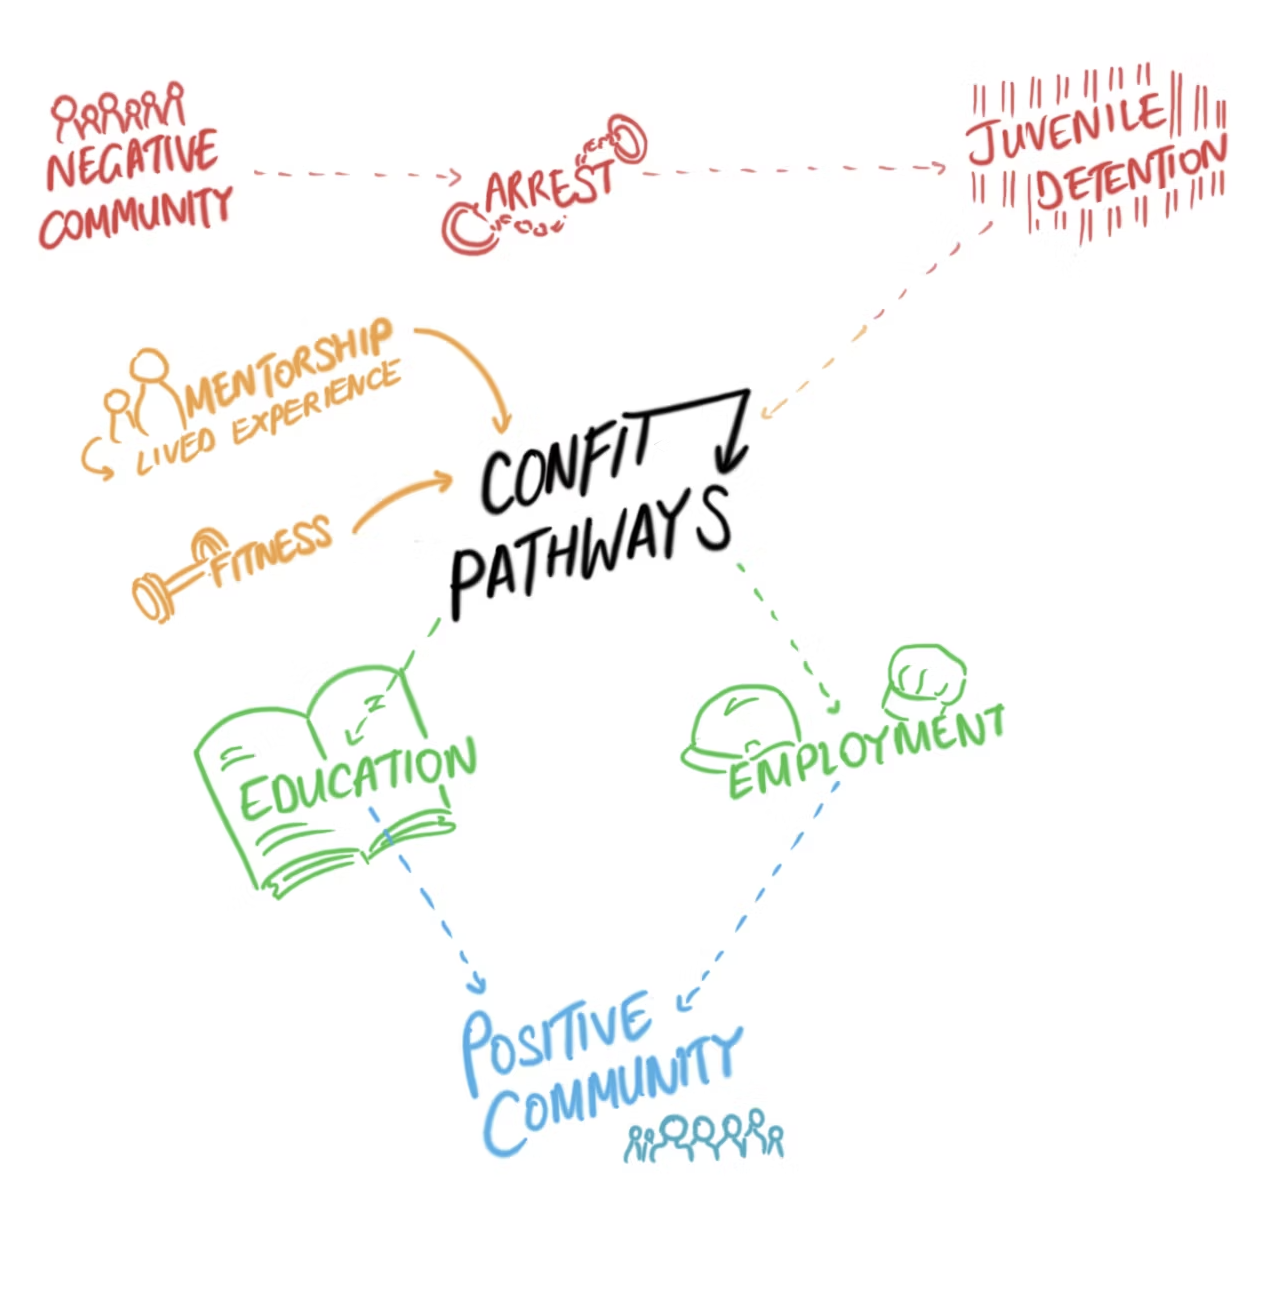 NEGATIVE
COMMUNITY
ARREST
JUVENILE
DETENTION
MENTORSHIP
LIVED EXPERIENCE
FITNESS
CONFIT
PATHWAYS
EDUCATION
EMPLOYMENT
POSITIVE
COMMUNITY